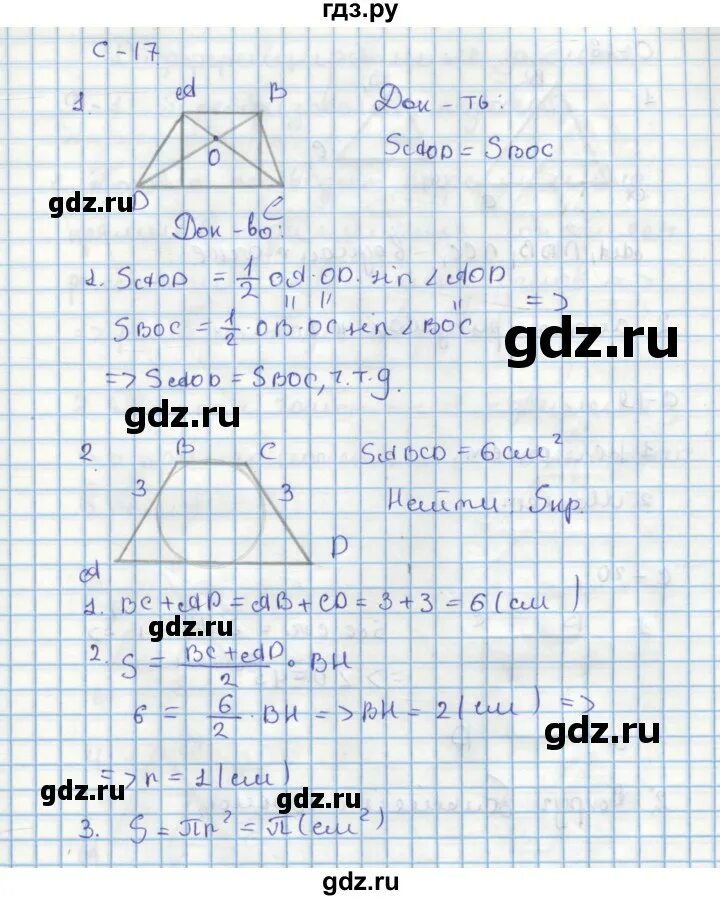 гдз.ру
С-17
1.
A B
O
D C
Док-ть:
SAOD = SBOC
gdz.ru
Док-во:
1. SAOD = 1/2 OA·OD·sin∠AOD
=>
SBOC = 1/2·OB·OC sin∠BOC
gdz.ru
=> SAOD = SBOC, ч.т.д.
gdz.ru
2
B C
3 3
A D
SABCD = 6 см²
Найти: Sкр.
1. BC+AD = AB+CD = 3+3 = 6 (см)
gdz.ru
2. S = BC+AD/2 · BH
6 = 6/2 · BH => BH = 2 (см) =>
gdz.ru
=> r = 1 (см)
gdz.ru
gdz.ru
3. S = πr² = π (см²)
gdz.ru